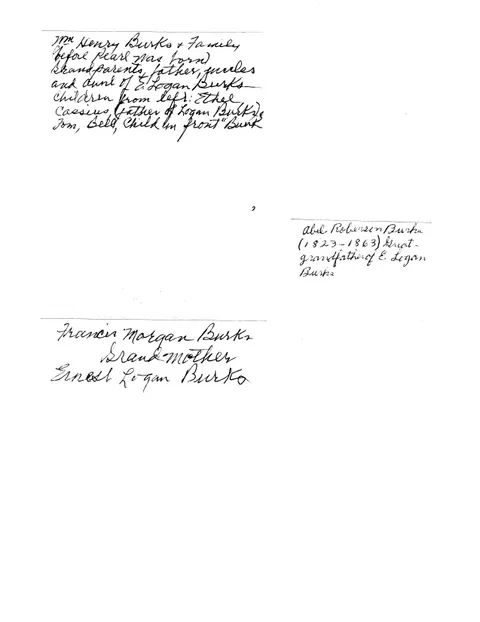 Wm Henry Burks & Family
before Pearl was born
Grandparents, father, uncles
and aunt of E. Logan Burks
Children from left: Ethel
Cassius (father of Logan Burks),
Tom, Bell, Child in front "Burk
Abel Roberson Burks
(1823-1863) Great-
grandfather of E. Logan
Burks
Francis Morgan Burks
Grand Mother
Ernest Logan Burks